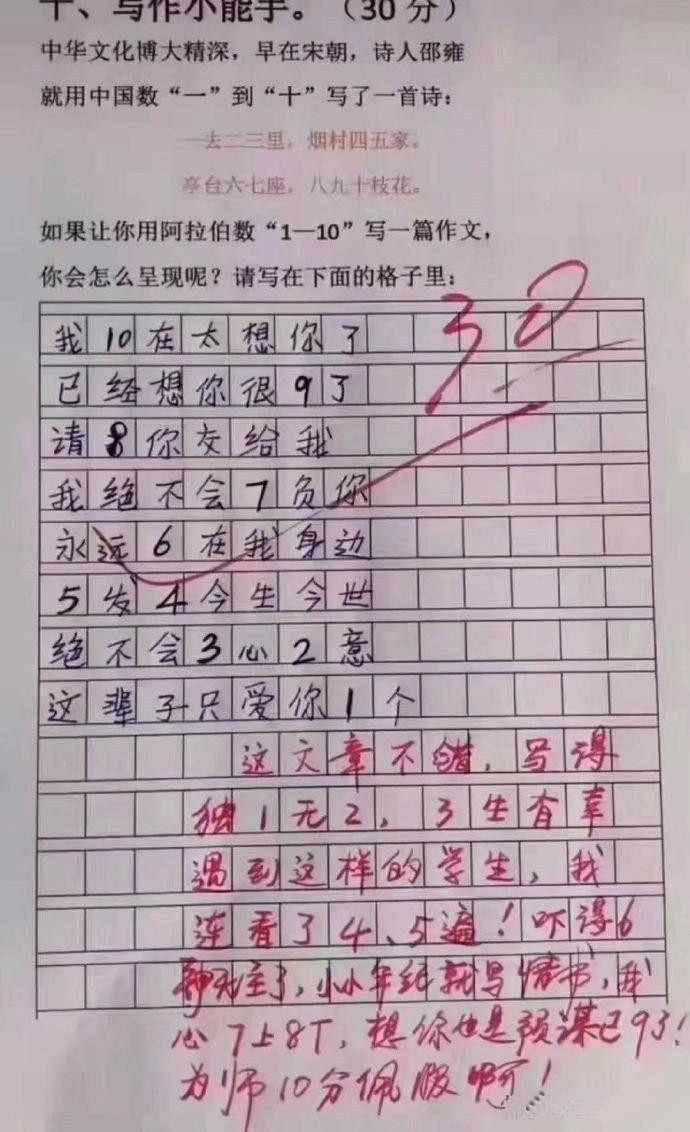 十、写作小能手。（30分）
中华文化博大精深，早在宋朝，诗人邵雍
就用中国数“一”到“十”写了一首诗：
一去二三里，烟村四五家。
亭台六七座，八九十枝花。
如果让你用阿拉伯数“1—10”写一篇作文，
你会怎么呈现呢？请写在下面的格子里：
30
我10在太想你了
已经想你很9了
请8你交给我
我绝不会7负你
永远6在我身边
5发4今生今世
绝不会3心2意
这辈子只爱你1个
这文章不错，写得
独1无2，3生有幸
遇到这样的学生，我
连看了4、5遍！吓得6
神无主了，小小年纪就写情书，我
心7上8下，想你也是预谋已9了！
为师10分佩服啊！